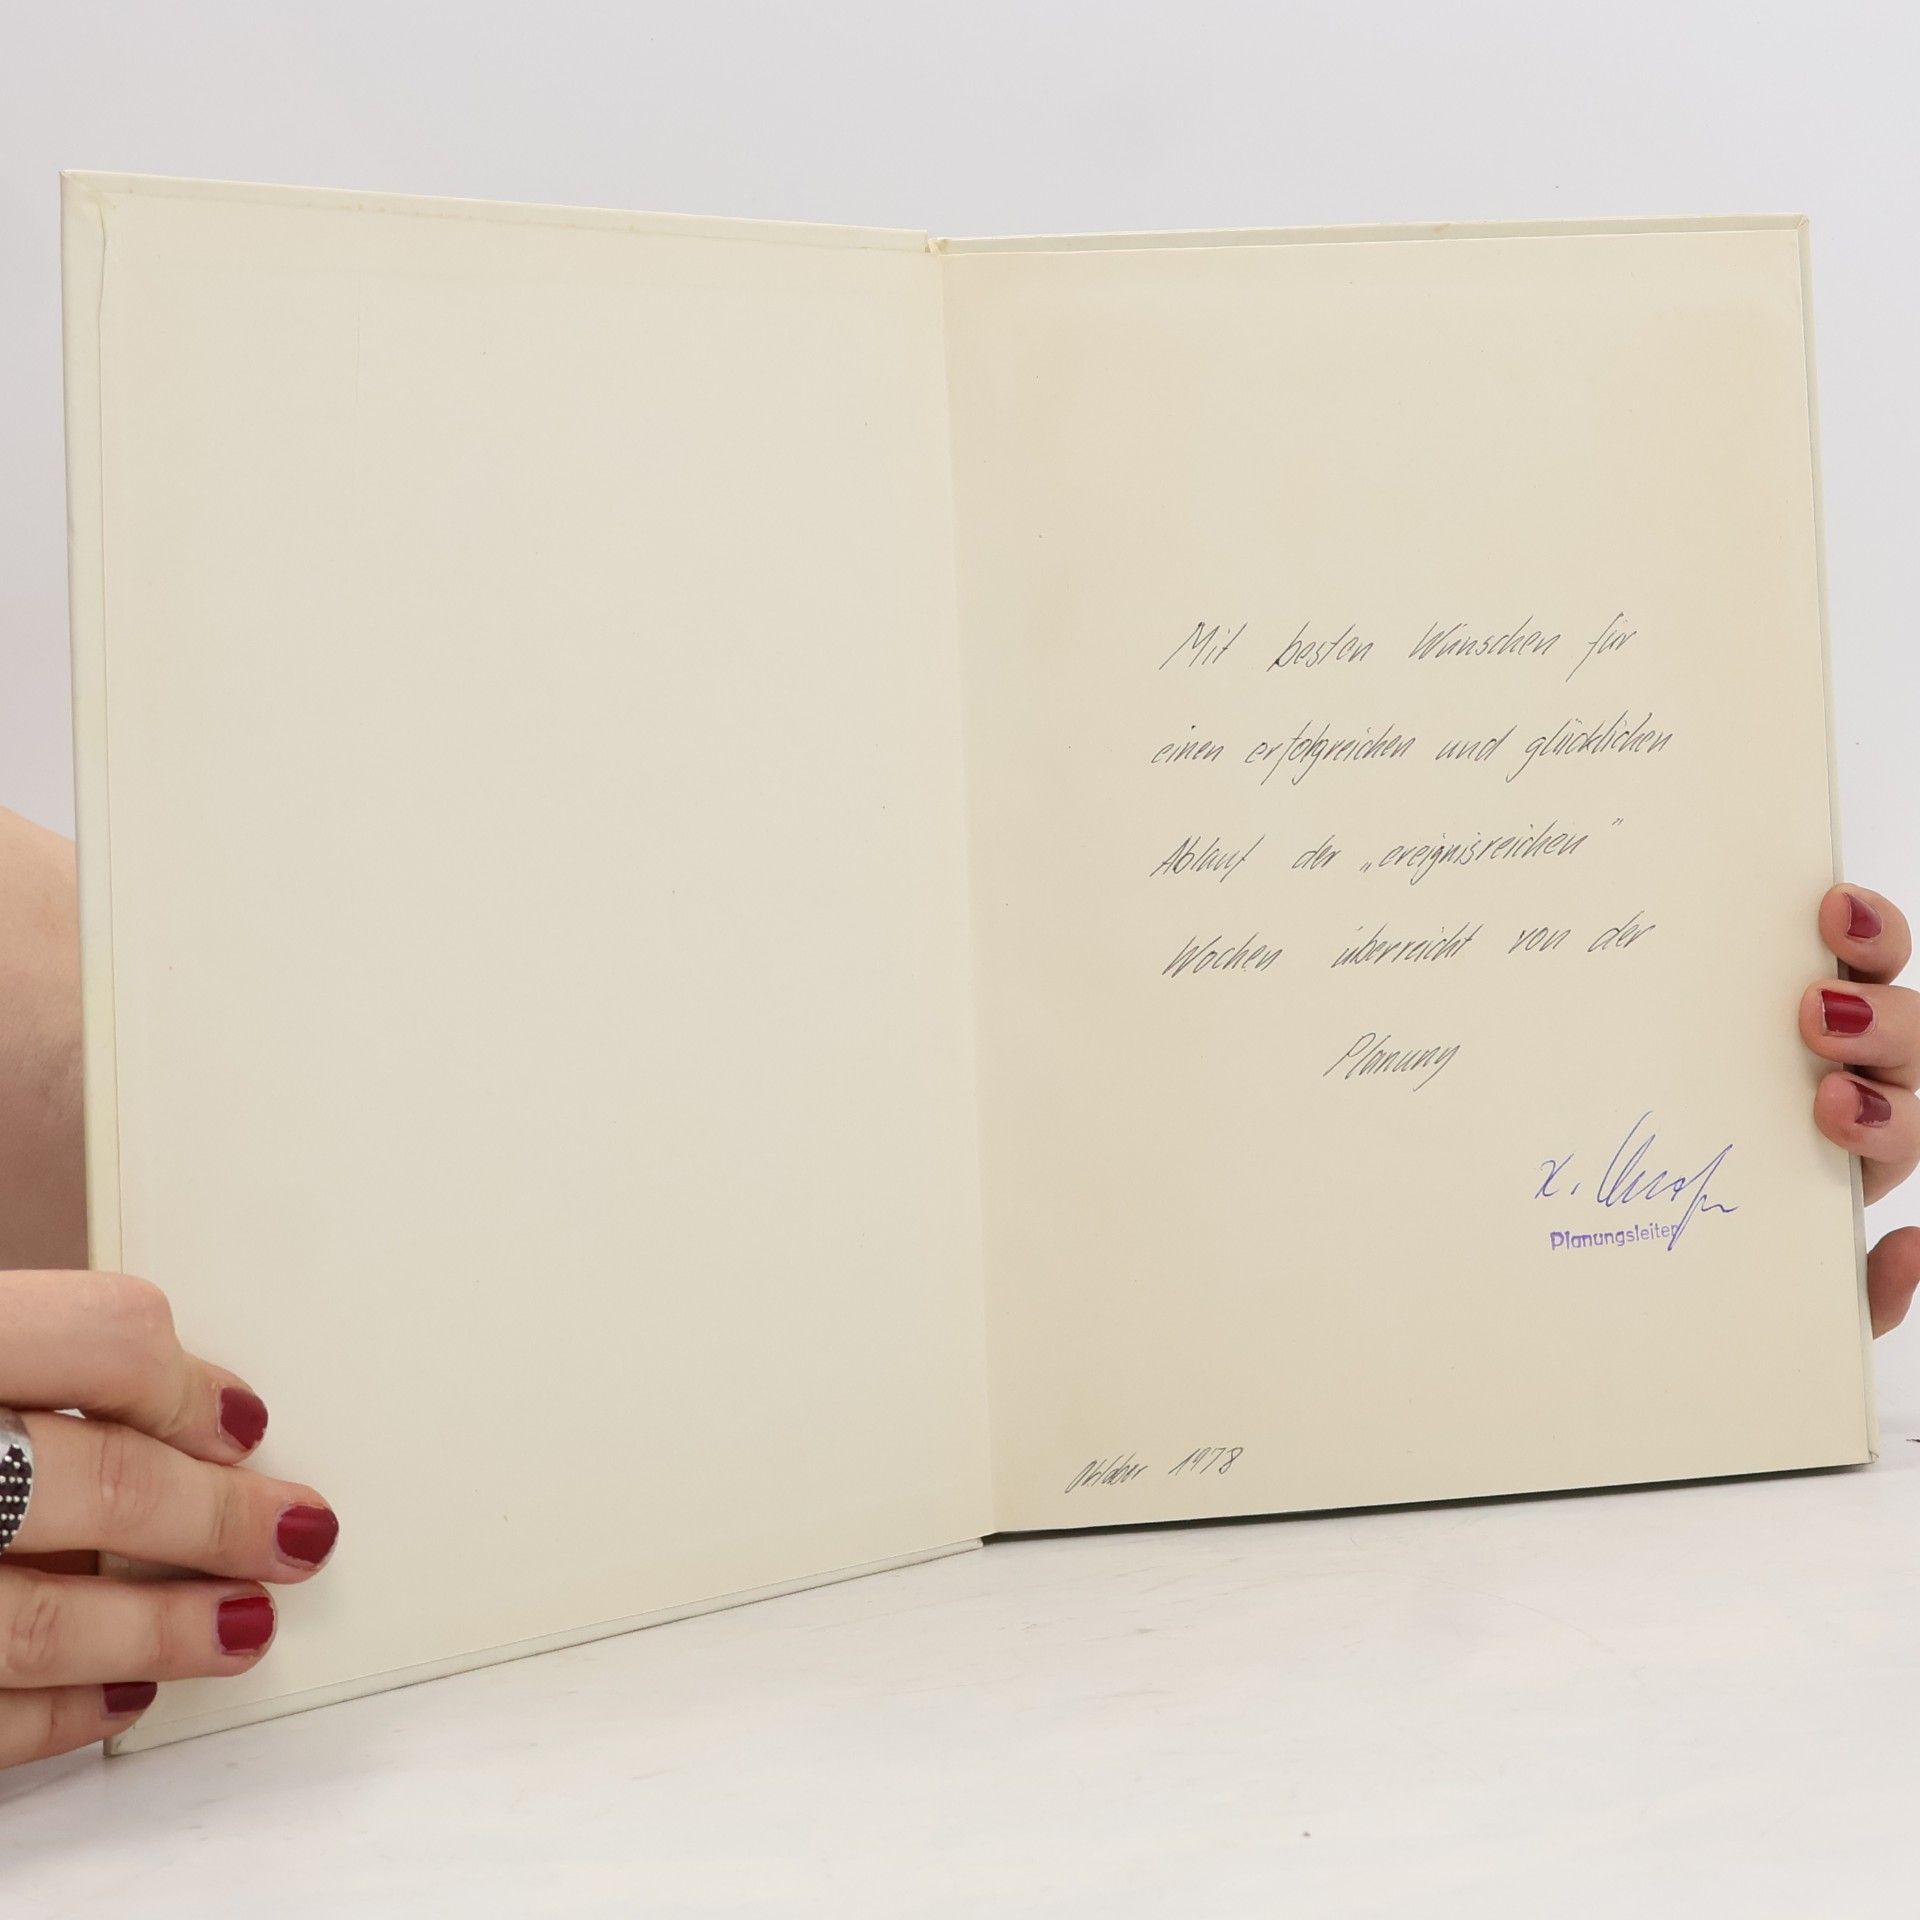 Mit besten Wünschen für
einen erfolgreichen und glücklichen
Ablauf der „ereignisreichen"
Wochen überreicht von der
Planung
Planungsleiter
Oktober 1978